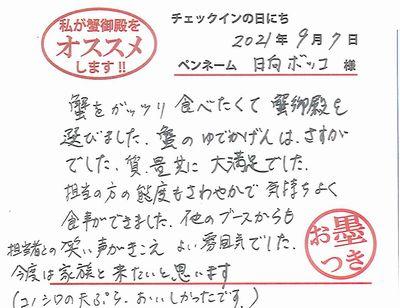 私が蟹御殿を
オススメ
します!!
チェックインの日にち
2021年9月7日
ペンネーム 日向ボッコ 様
蟹をガッツリ食べたくて蟹御殿を
選びました。蟹のゆでかげんは、さすが
でした。質、量共に大満足でした。
担当の方の態度もさわやかで気持ちよく
食事ができました。他のブースからも
担当者との笑い声がきこえ よい雰囲気でした。
今度は家族と来たいと思います
(コノシロの天ぷら、おいしかったです。)
お墨
つき